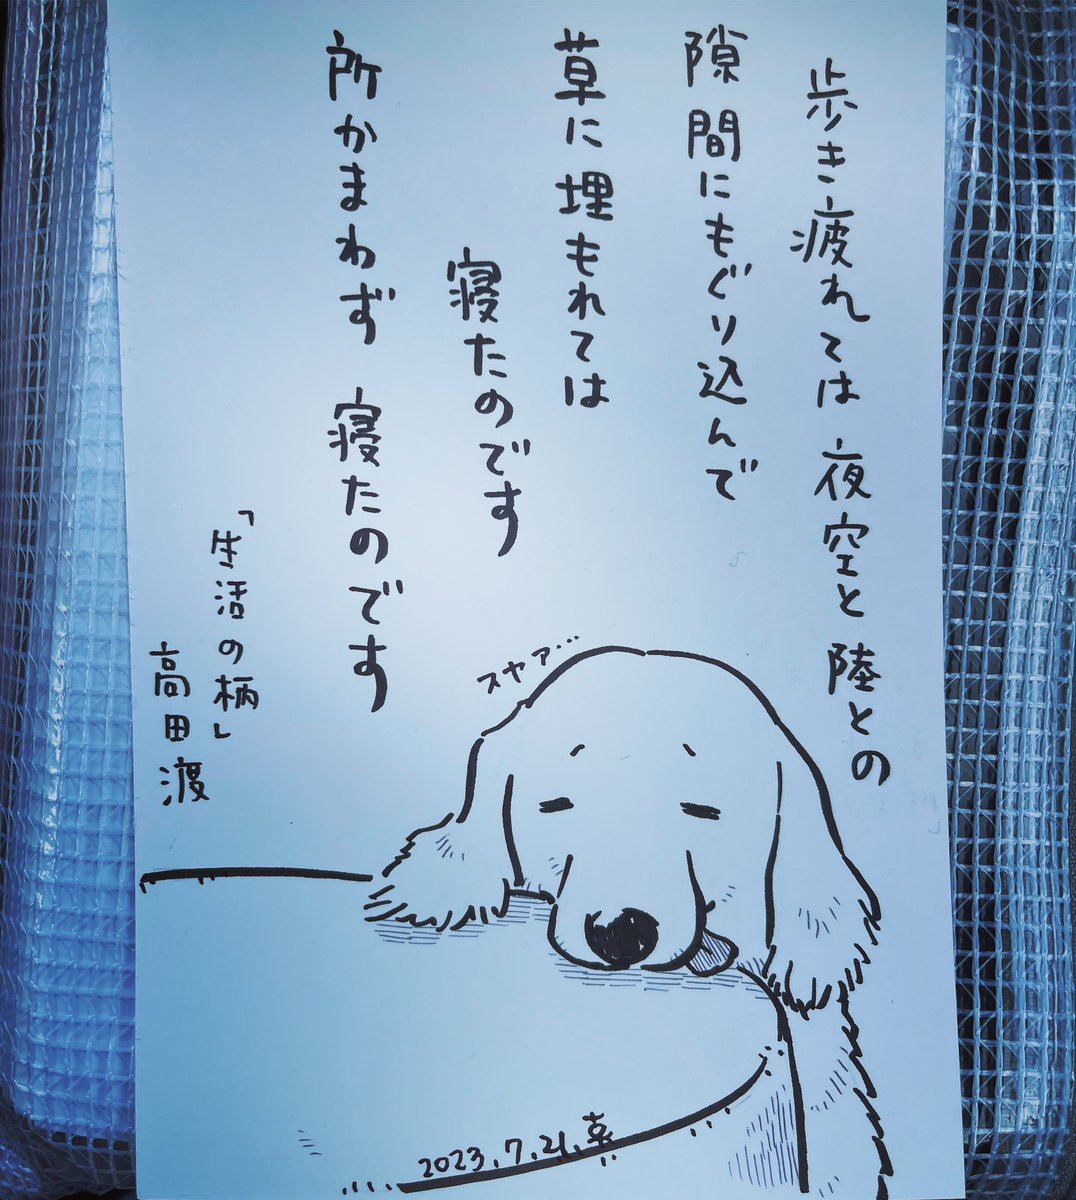 歩き疲れては 夜空と陸との
隙間にもぐり込んで
草に埋もれては
寝たのです
所かまわず 寝たのです
「生活の柄」
高田渡
スヤァ…
2023.7.21.